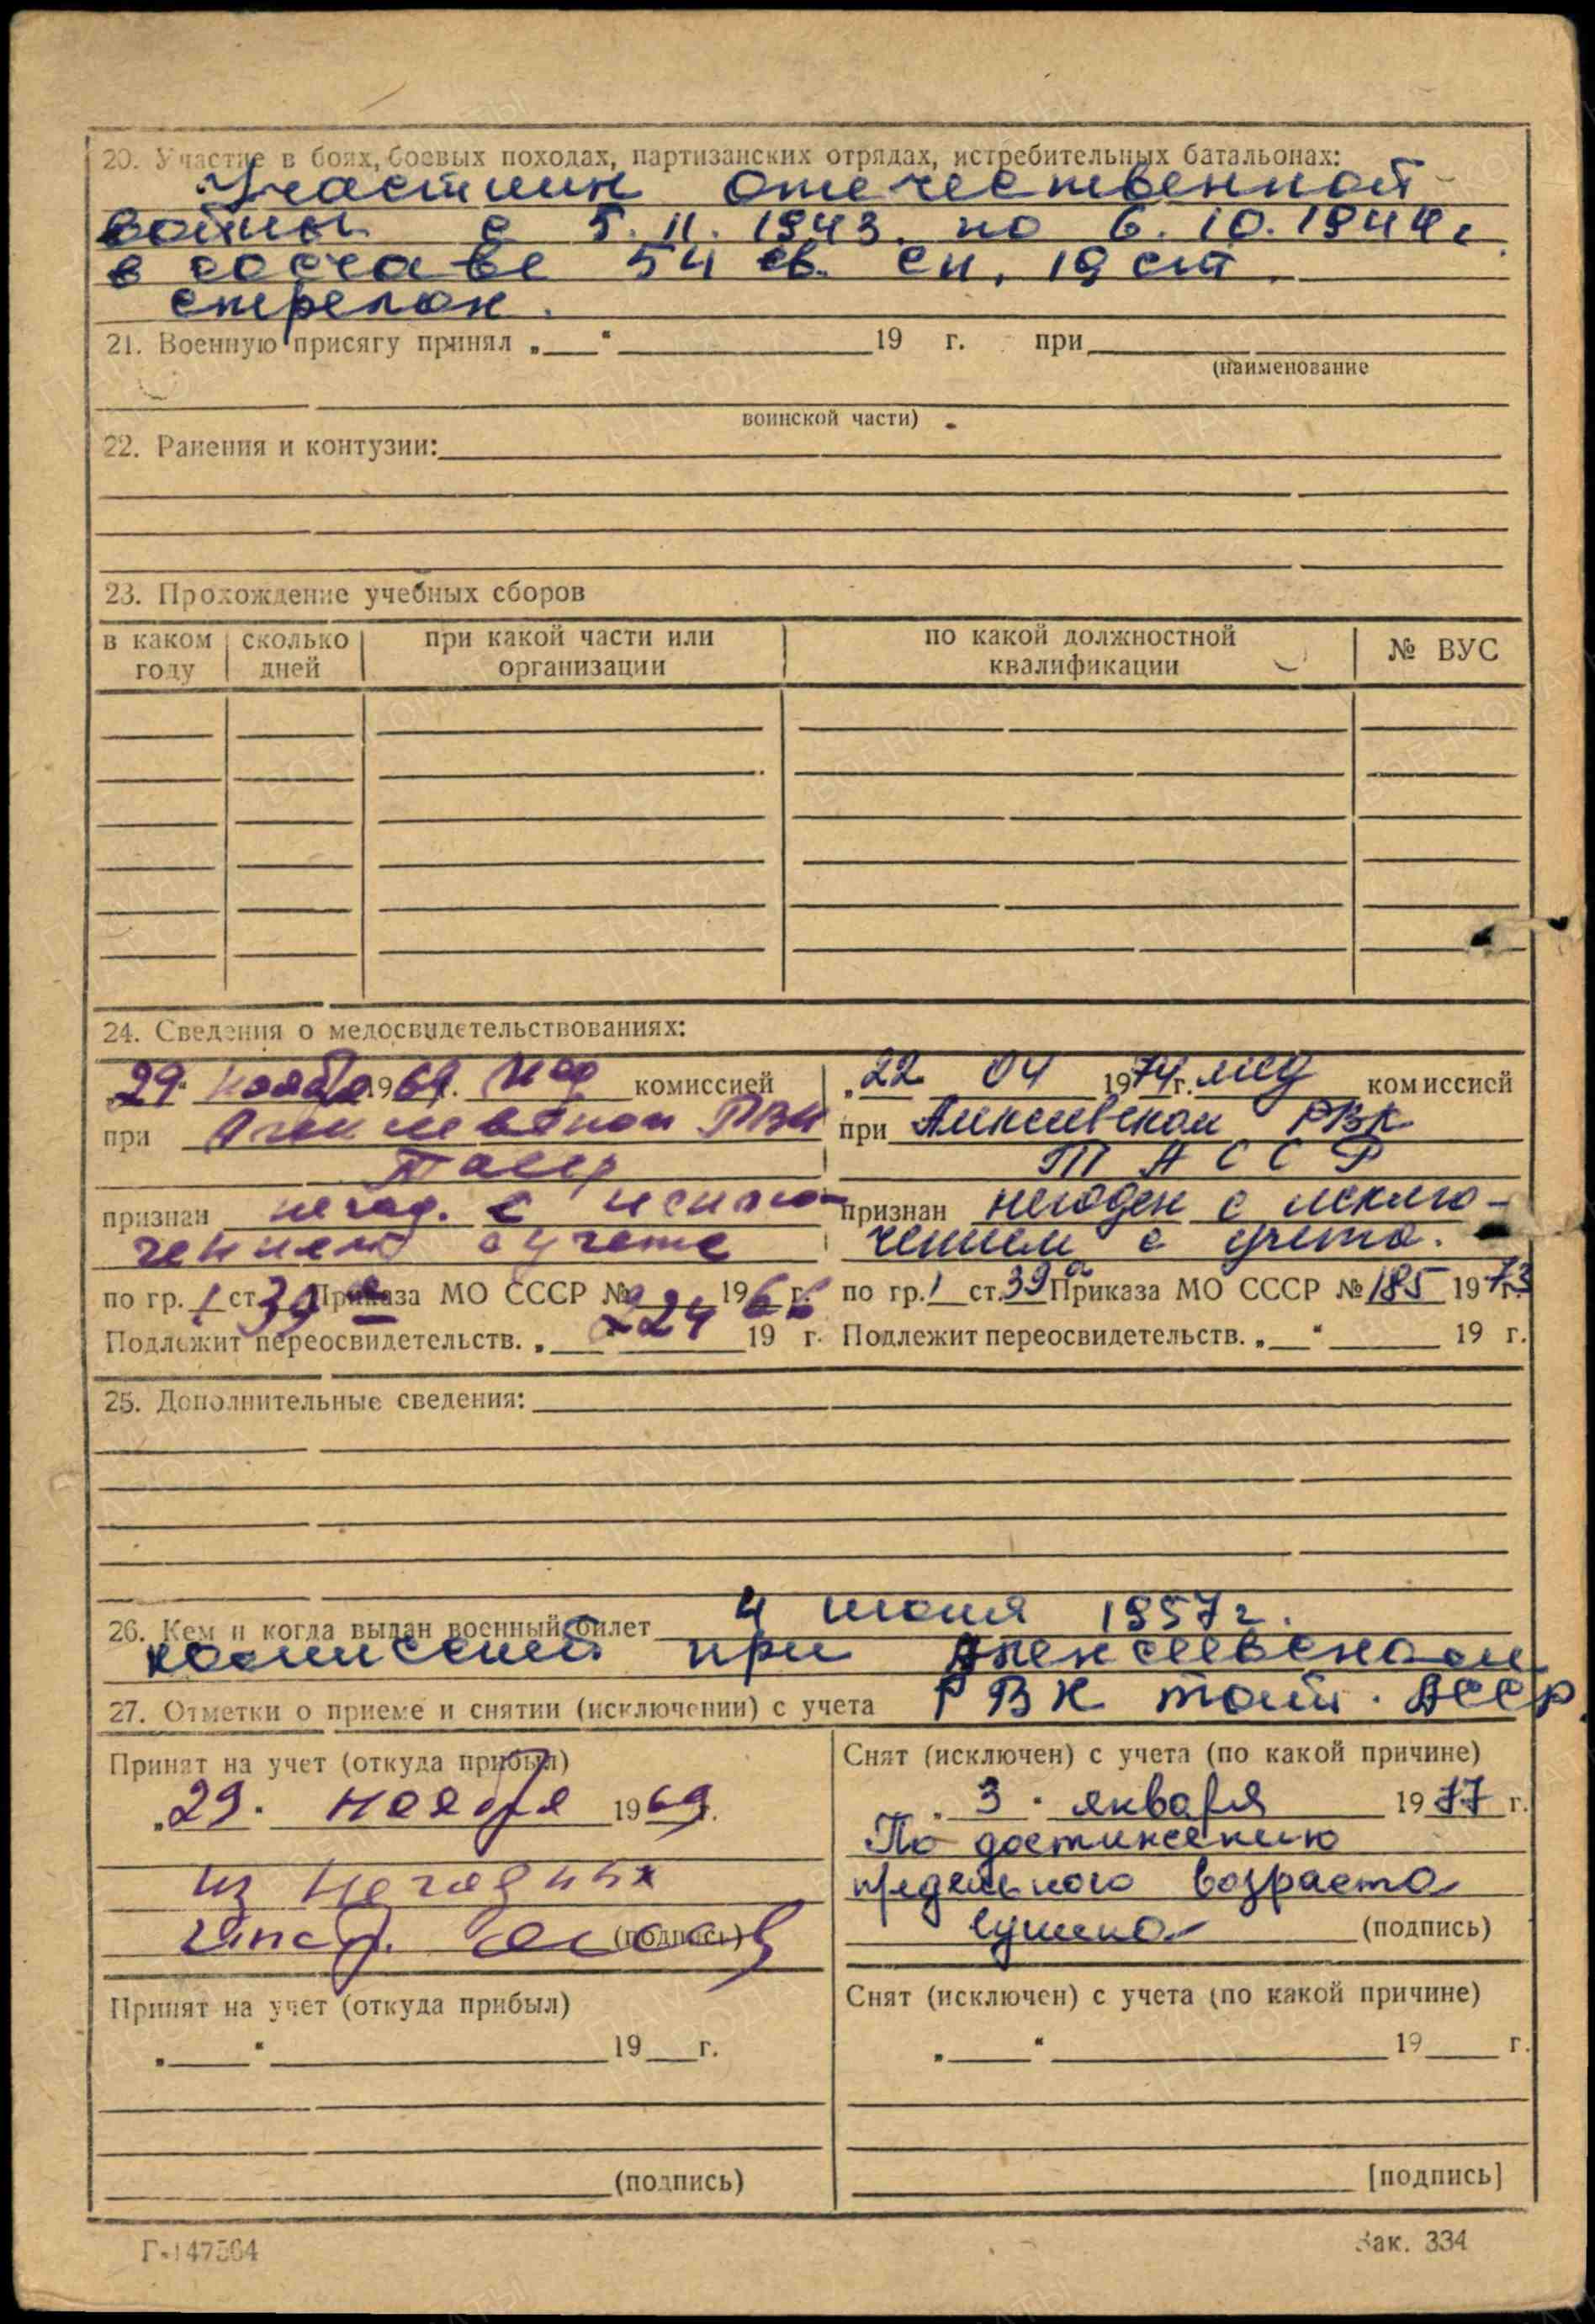 20. Участие в боях, боевых походах, партизанских отрядах, истребительных батальонах:
Участник отечественной
войны с 5.11.1943. по 6.10.1944г
в составе 54 св. сп, 19 сд
стрелок.
21. Военную присягу принял „ “ 19 г. при
(наименование
воинской части)
22. Ранения и контузии:
23. Прохождение учебных сборов
в каком году | сколько дней | при какой части или организации | по какой должностной квалификации | № ВУС
24. Сведения о медосвидетельствованиях:
29. ноября 1969. мед комиссией
при Алексеевском РВК
ТАССР
признан негод. с исклю-
чением с учета
по гр. 1 ст. 39 а Приказа МО СССР № 224 1966 г.
Подлежит переосвидетельств. „ 19 г.
„22 04 1974г. мед комиссией
при Алексеевском РВК
ТАССР
признан негоден с исклю-
чением с учета.
по гр. 1 ст. 39а Приказа МО СССР № 185 1973 г.
Подлежит переосвидетельств. „ “ 19 г.
25. Дополнительные сведения:
26. Кем и когда выдан военный билет 4 июня 1957г.
комиссией при Алексеевском
РВК тат. АССР.
27. Отметки о приеме и снятии (исключении) с учета
Принят на учет (откуда прибыл)
„29. ноября 1969г.
из негодных
(подпись)
Снят (исключен) с учета (по какой причине)
„3. января 1977 г.
По достижению
предельного возраста
(подпись)
Принят на учет (откуда прибыл)
„ “ 19 г.
(подпись)
Снят (исключен) с учета (по какой причине)
„ “ 19 г.
[подпись]
Г-147564
Зак. 334